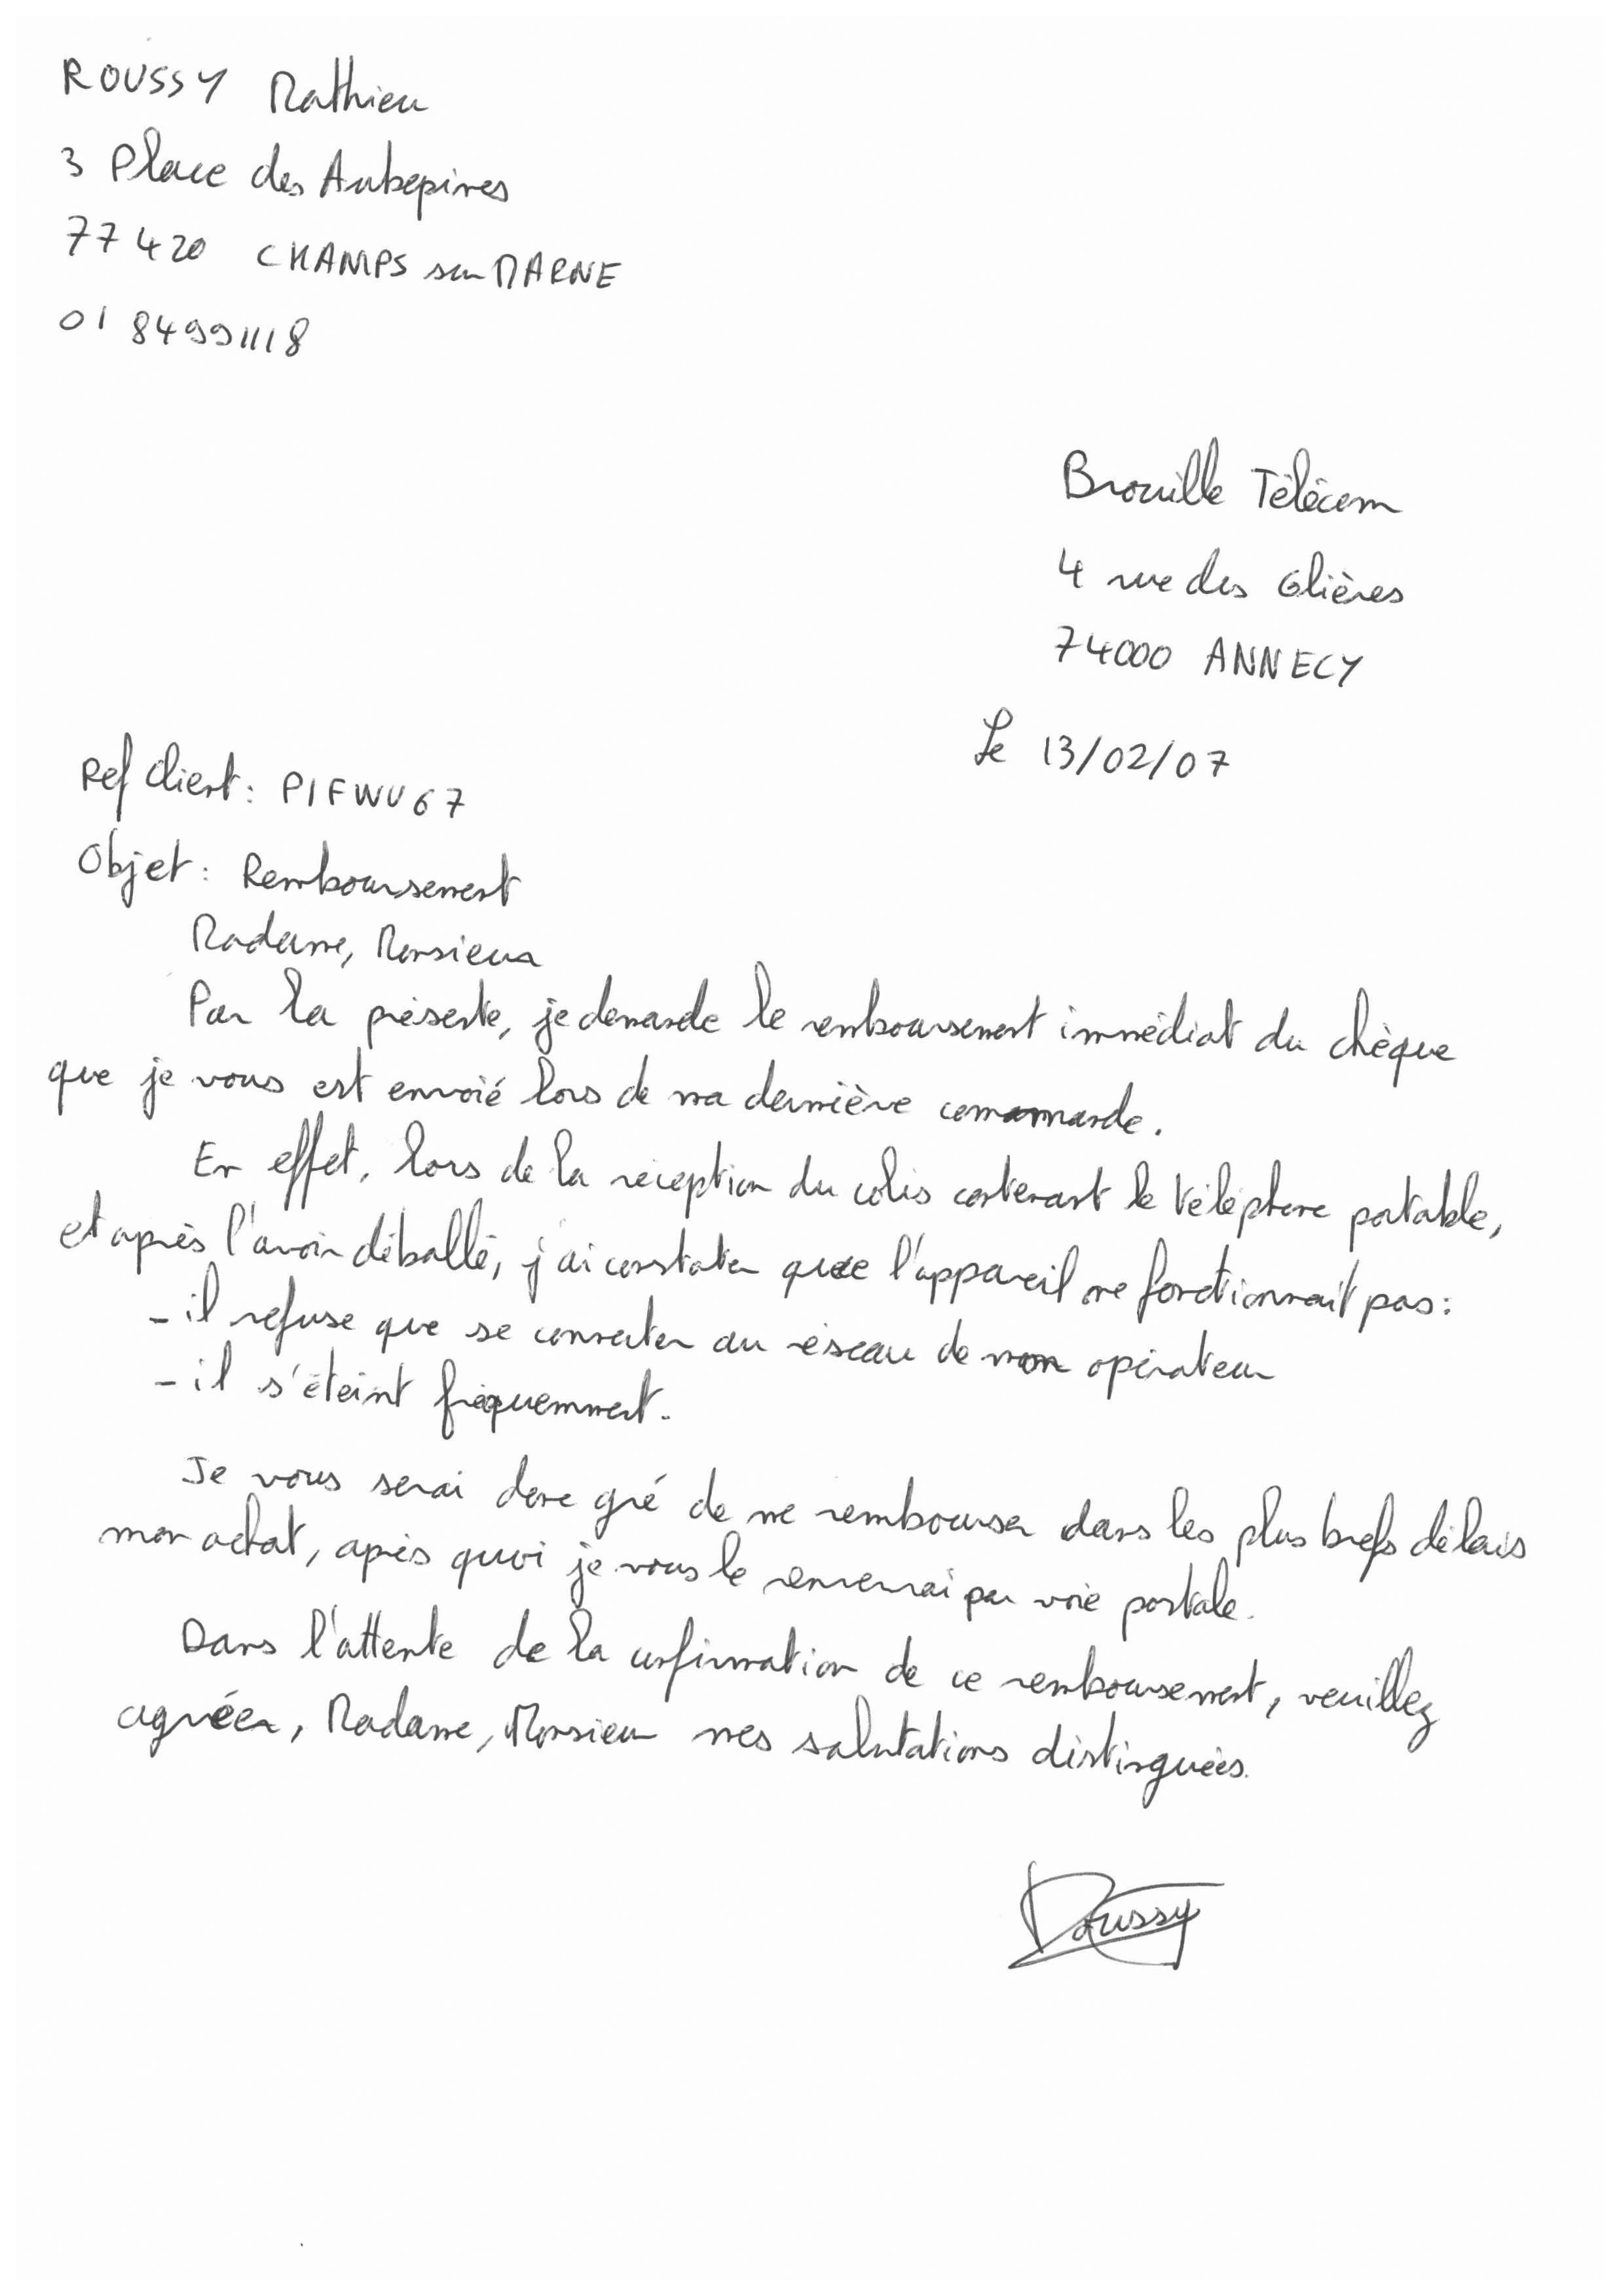 ROUSSY Mathieu
3 Place des Aubepines
77420 CHAMPS sur MARNE
01 84991118
Brouille Télécom
4 rue des Glières
74000 ANNECY
Le 13/02/07
Ref client : PIFWU67
Objet : Remboursement
Madame, Monsieur
Par la présente, je demande le remboursement immédiat du chèque
que je vous est envoié lors de ma dernière commande.
En effet, lors de la réception du colis contenant le téléphone portable,
et après l'avoir déballé, j'ai constater que l'appareil ne fonctionnait pas :
- il refuse que se connecter au réseau de mon opérateur
- il s'éteint fréquemment.
Je vous serai donc gré de me rembourser dans les plus brefs délais
mon achat, après quoi je vous le renverrai par voie postale.
Dans l'attente de la confirmation de ce remboursement, veuillez
agréer, Madame, Monsieur mes salutations distinguées.
Roussy